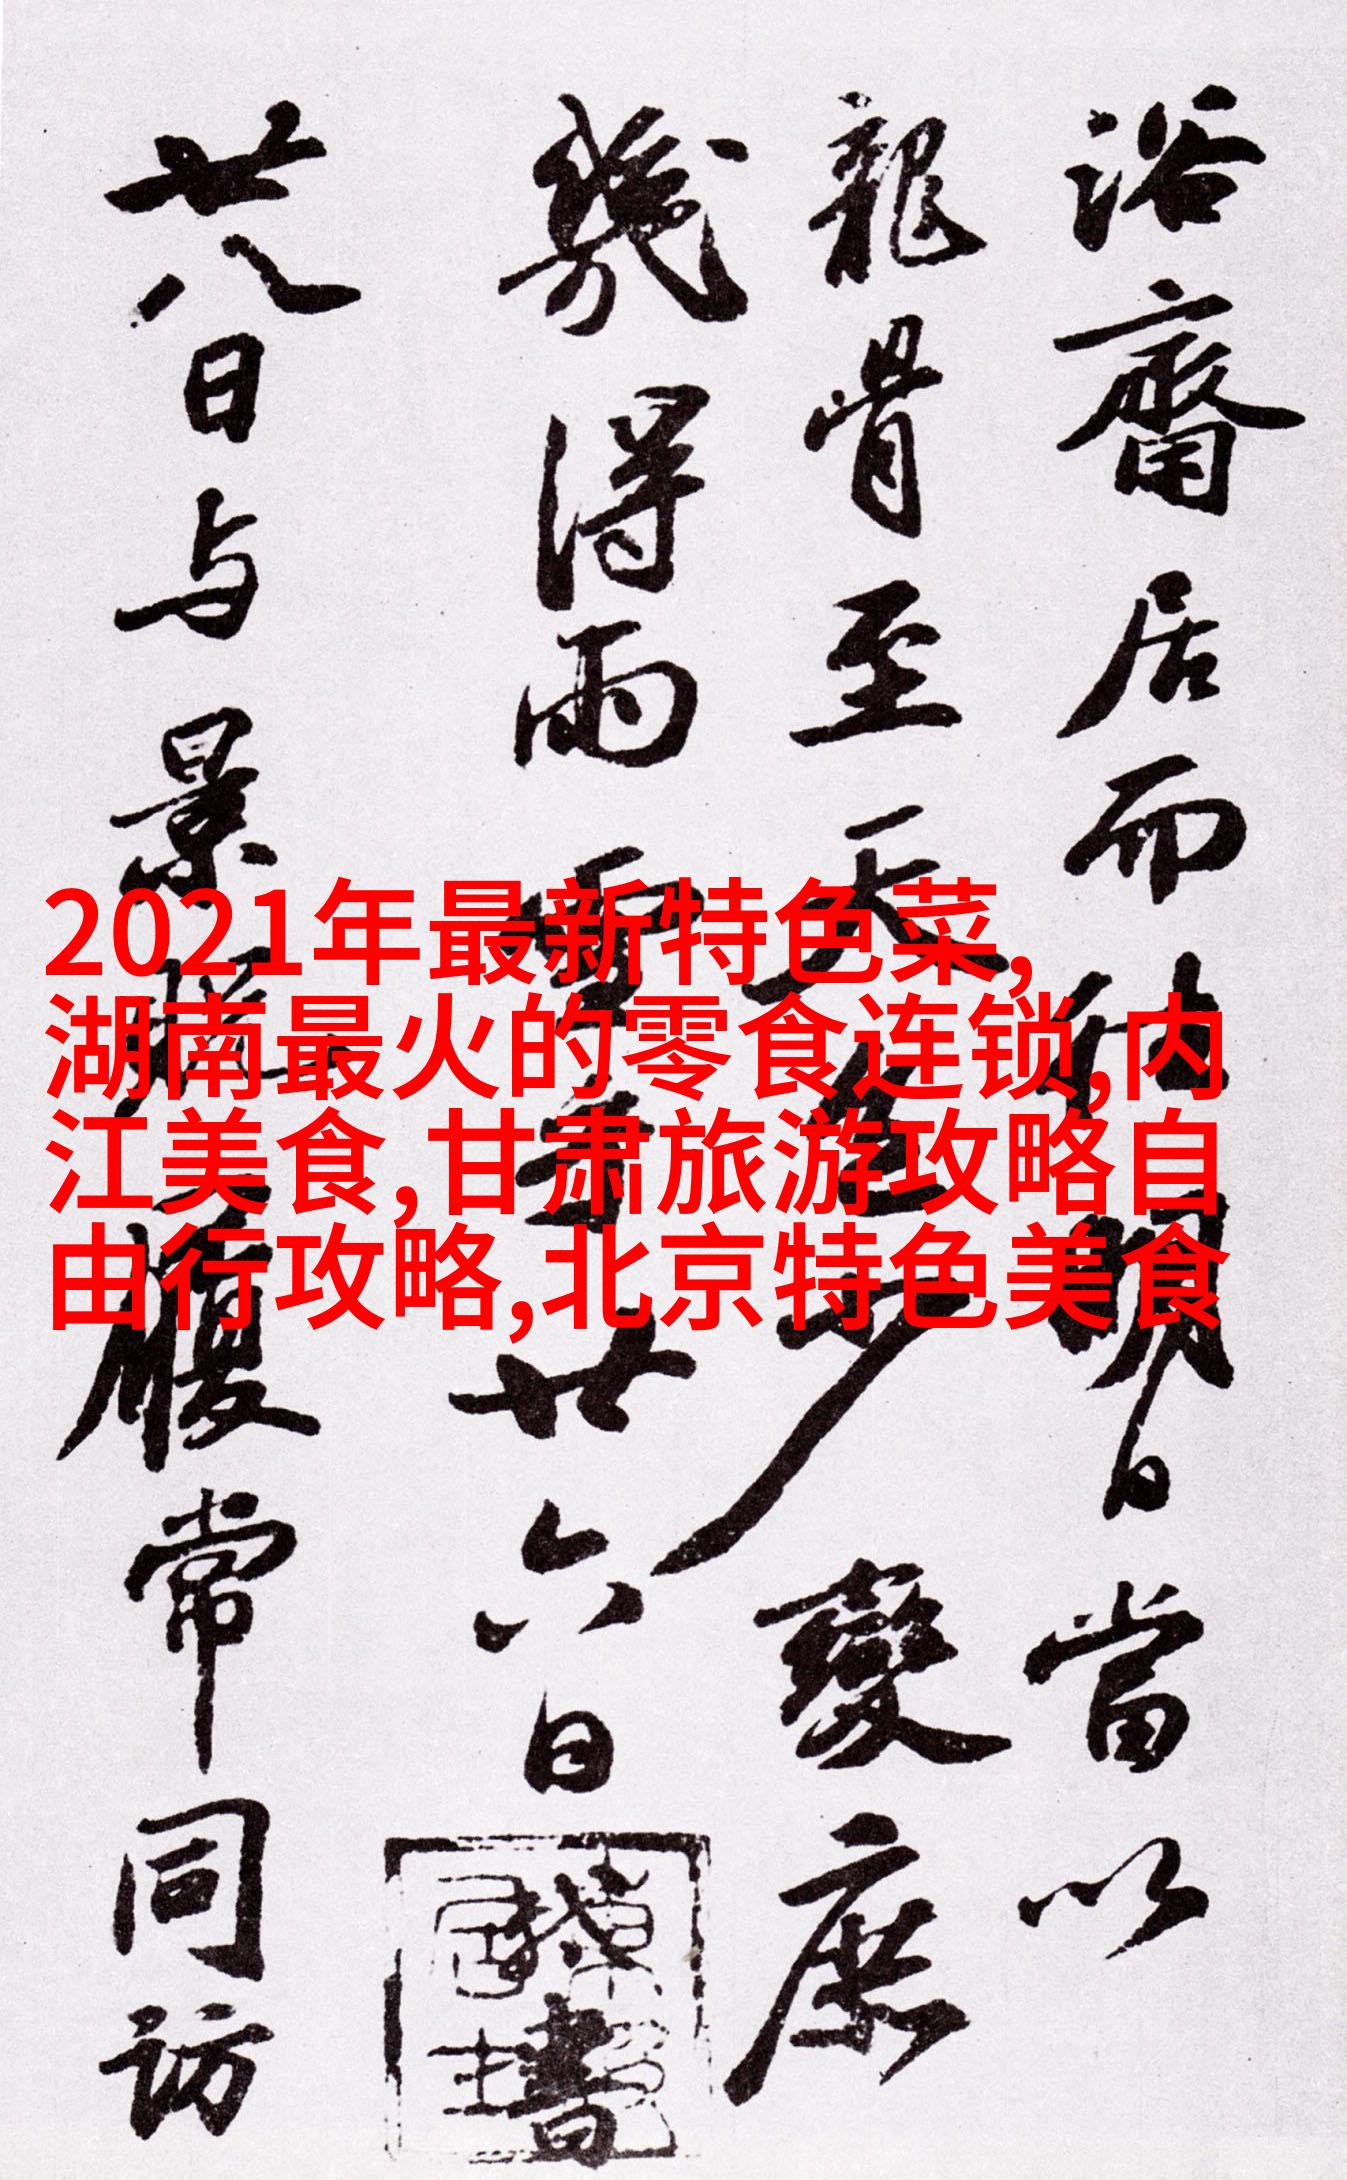 浴齋居而納明日當以
龍骨至天色少變庶
幾得雨雪
廿六日
書
廿八日与景
履常同訪
2021年最新特色菜,
湖南最火的零食连锁,内
江美食,甘肃旅游攻略自
由行攻略,北京特色美食